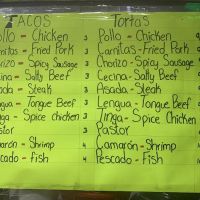 TACOS
Pollo - Chicken 3
Carnitas - Fried Pork 3
Chorizo - Spicy Sausage 3
Cecina - Salty Beef 3
Asada - Steak 3
Lengua - Tongue Beef 3
Tinga - Spice chicken 3
Pastor 3
Camarón - Shrimp 4
Pescado - Fish 4
Tortas
Pollo - Chicken
Carnitas - Fried Pork
Chorizo - Spicy Sausage
Cecina - Salty Beef
Asada - Steak
Lengua - Tongue Beef
Tinga - Spice Chicken
Pastor
Camarón - Shrimp
Pescado - Fish